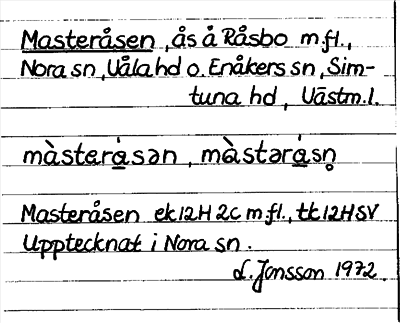 Masteråsen, ås å Råsbo m.fl.,
Nora sn, Våla hd o. Enåkers sn, Sim-
tuna hd, Västm.l.
màsterå̀sən, mà̀stərå̀sn̥
Masteråsen ek 12H 2c m.fl., tk 12H SV
Upptecknat i Nora sn.
L. Jonsson 1972.